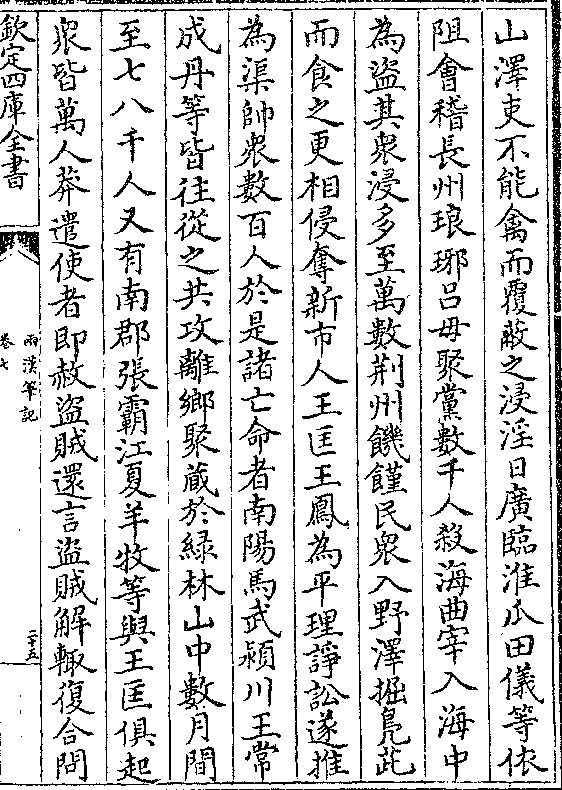 山澤吏不能禽而覆蔽之浸淫日廣臨淮瓜田儀等依
阻會稽長州琅琊吕母聚黨數千人殺海曲宰入海中
為盜其衆浸多至萬數荆州饑饉民衆入野澤掘鳧茈
而食之更相侵奪新市人王匡王鳳為平理諍訟遂推
為渠帥衆數百人於是諸亡命者南陽馬武潁川王常
成丹等皆往從之共攻離鄉聚藏於緑林山中數月間
至七八千人又有南郡張霸江夏羊牧等與王匡俱起
衆皆萬人莽遣使者即赦盜賊還言盜賊解輒復合問
欽定四庫全書
兩漢筆記
卷七
二十五